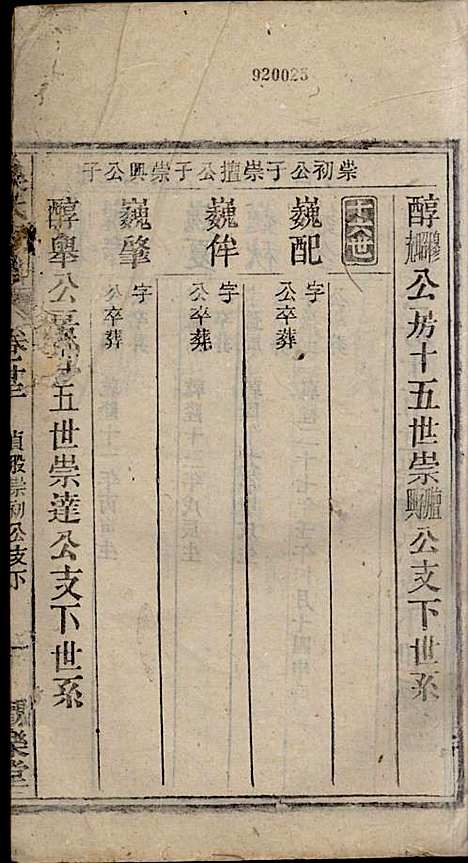 920023
崇初公子崇擅公子崇興公子
醇公房十五世崇公支下世系
十六世
巍配
字
公卒葬
巍侔
字
公卒葬
巍肇
字
公卒葬
醇舉公房十五世崇達公支下世系
卷廿三
貞股崇初公支下
一
樂堂